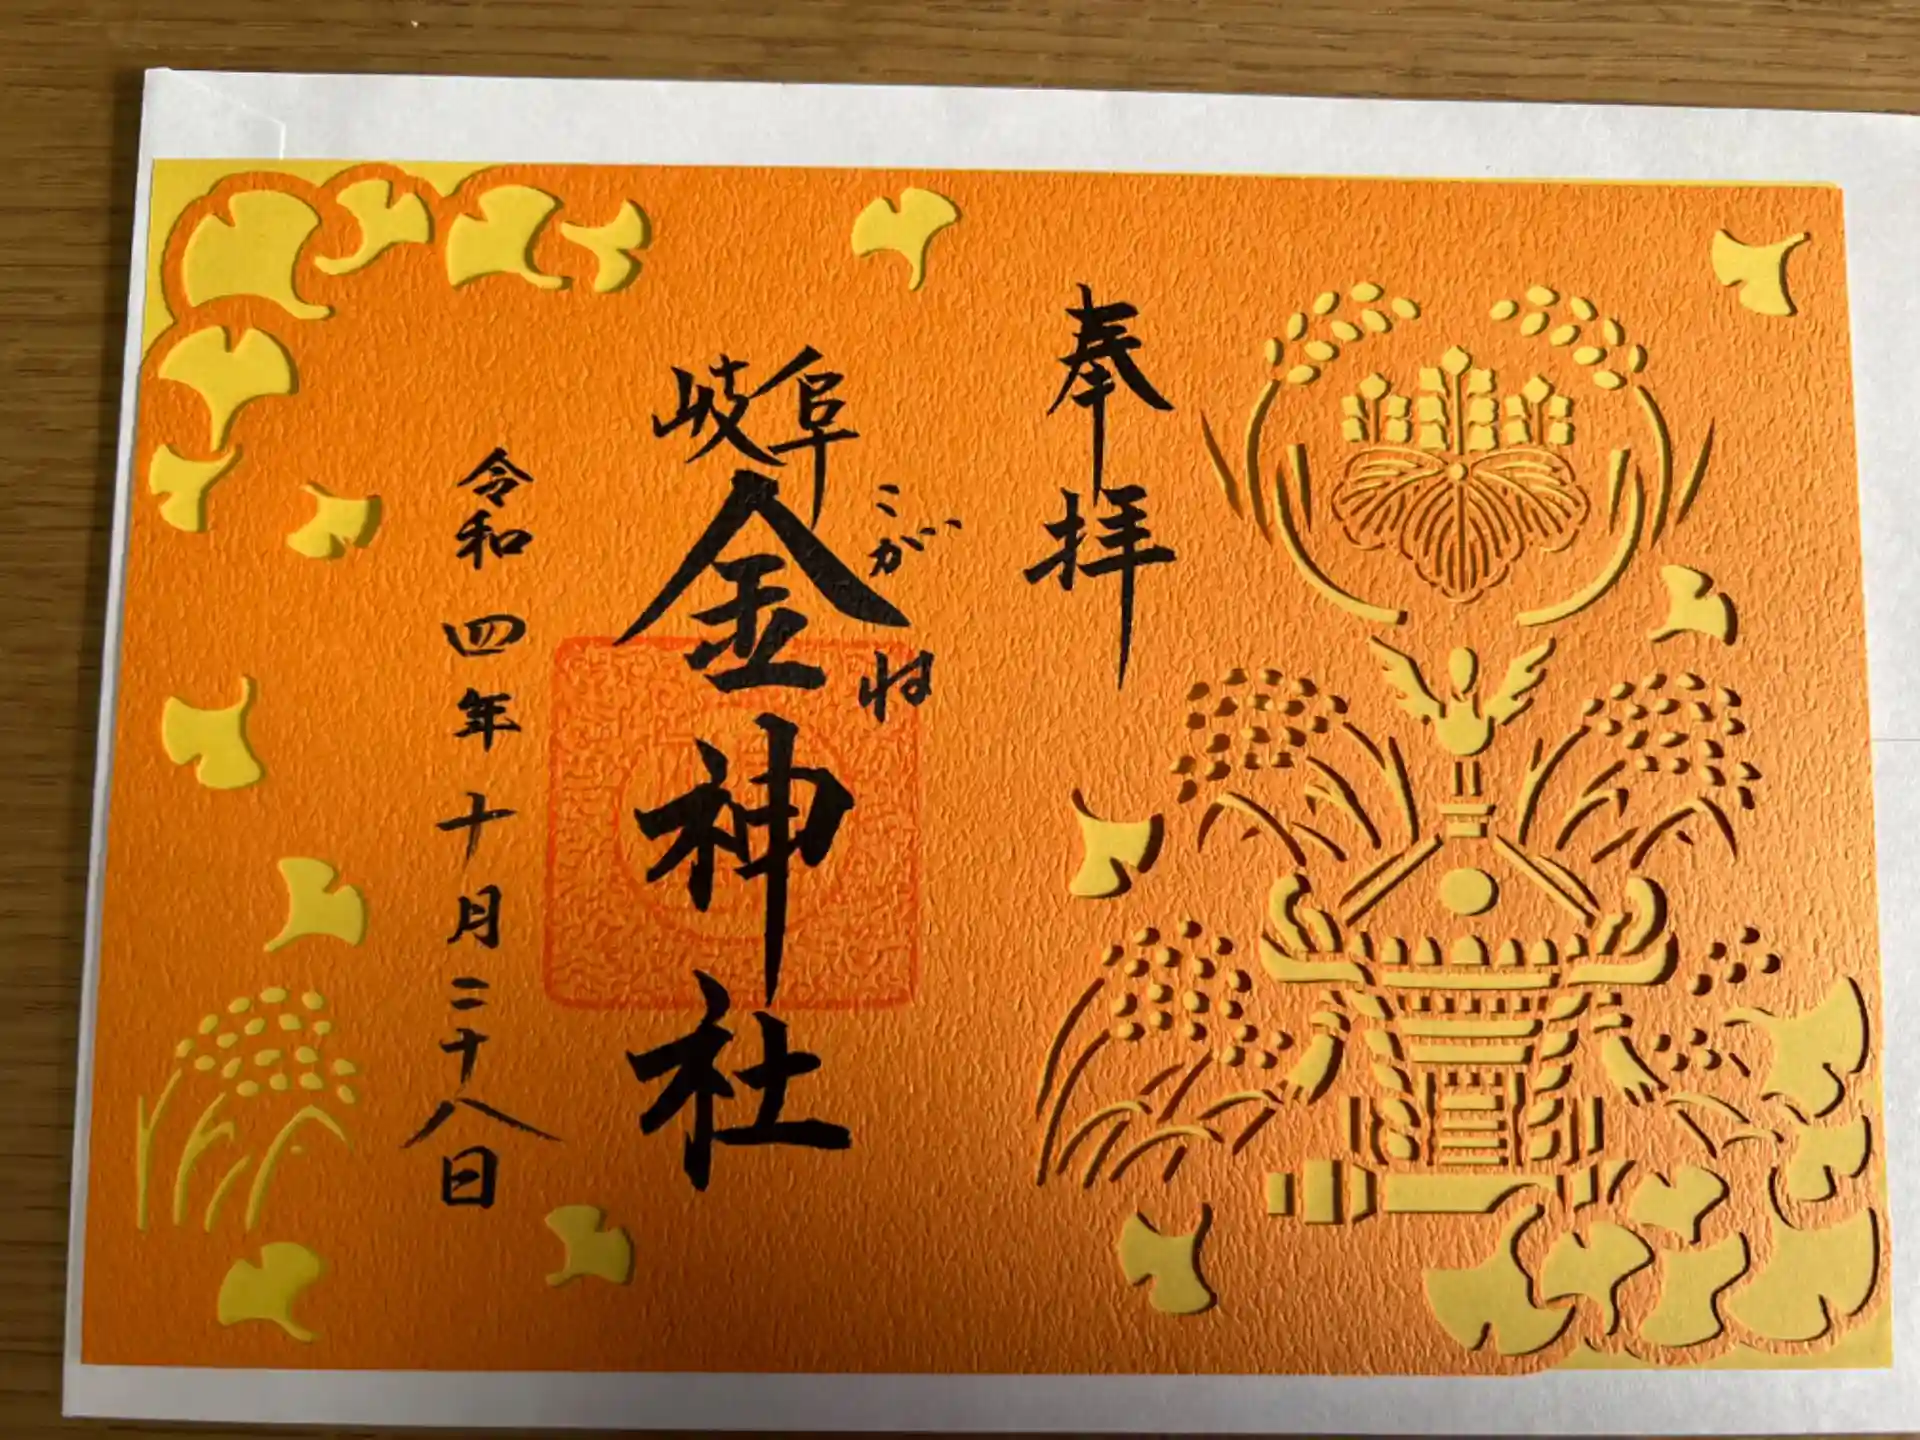 奉拝
岐阜
金神社
こがね
令和四年十月二十八日